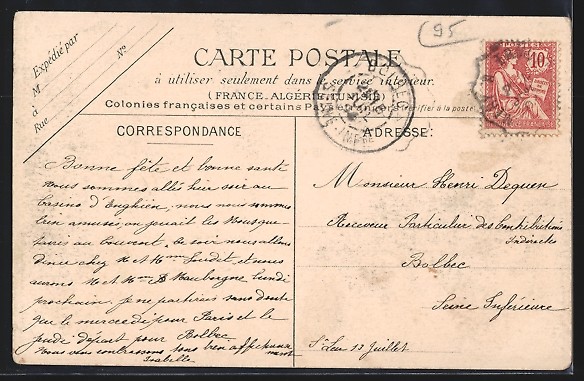 95
Expédié par
M
à
Rue
N°
CARTE POSTALE
à utiliser seulement dans le service intérieur.
(FRANCE, ALGÉRIE, TUNISIE)
Colonies françaises et certains Pays étrangers (vérifier à la poste)
POSTES
10
CORRESPONDANCE
Bonne fête et bonne santé
nous sommes allé hier soir au
Casino d'Enghien, nous nous sommes
bien amusés, on jouait les Mousque-
taires au Couvent, ce soir nous allons
dîner chez M et Mme et nous
aurons M et Mme Mauborgne lundi
prochain, je ne partirais sans doute
que le mercredi pour Paris et le
jeudi départ pour Bolbec
Nous vous embrassons tous bien affectueuse-
ment
Isabelle
ADRESSE:
Monsieur Henri Dequen
Receveur Particulier des Contributions
Indirectes
Bolbec
Seine Inférieure
St Leu 13 Juillet
BOLBEC